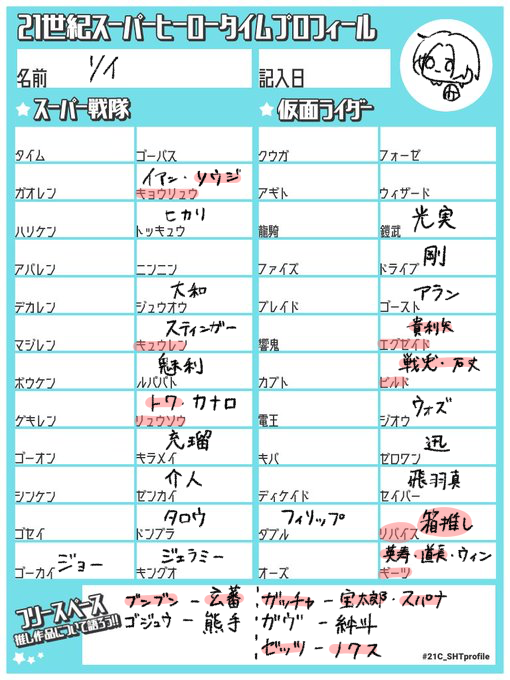 21世紀スーパーヒーロータイムプロフィール
名前 ソイ
記入日
スーパー戦隊
仮面ライダー
タイム
ゴーバス
クウガ
フォーゼ
ガオレン
キョウリュウ イアン・ソウジ
アギト
ウィザード
ハリケン
トッキュウ ヒカリ
龍騎
鎧武 光実
アバレン
ニンニン
ファイズ
ドライブ 剛
デカレン
ジュウオウ 大和
ブレイド
ゴースト アラン
マジレン
キュウレン スティンガー
響鬼
エグゼイド 貴利矢
ボウケン
ルパパト 魁利
カブト
ビルド 戦兎・万丈
ゲキレン
リュウソウ トワ・カナロ
電王
ジオウ ウォズ
ゴーオン
キラメイ 充瑠
キバ
ゼロワン 迅
シンケン
ゼンカイ 介人
ディケイド
セイバー 飛羽真
ゴセイ
ドンブラ タロウ
ダブル フィリップ
リバイス 箱推し
ゴーカイ ジョー
キングオ ジェラミー
オーズ
ギーツ 英寿・道長・ウィン
フリースペース
推し作品について語ろう!!
ブンブン − 玄蕃
ゴジュウ − 熊手
ガッチャ − 宝太郎・スパナ
ガヴ − 絆斗
ゼッツ − ノクス
#21C_SHTprofile